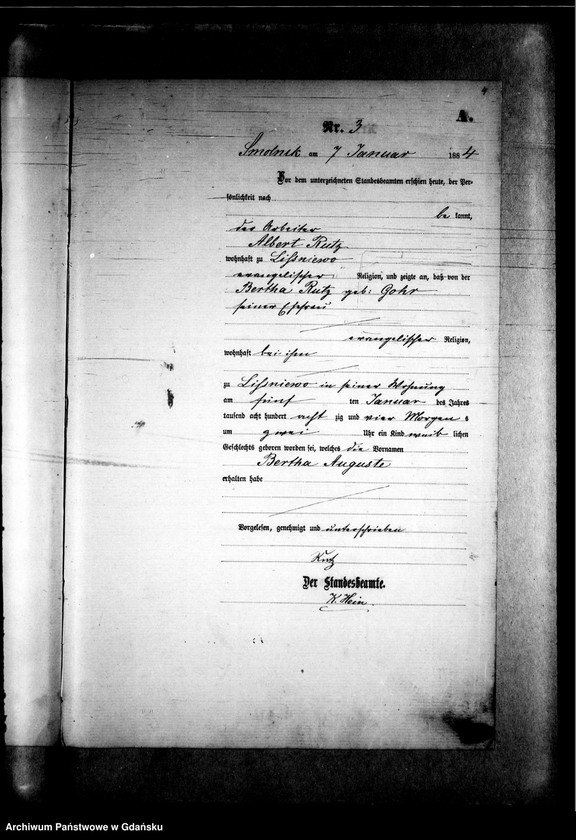 4
A.
Nr. 3
Smolnik am 7 Januar 1884
Vor dem unterzeichneten Standesbeamten erschien heute, der Per-
sönlichkeit nach
be kannt,
der Arbeiter
Albert Rutz
wohnhaft zu Lissniewo
evangelischer Religion, und zeigte an, daß von der
Bertha Rutz geb: Gohr
seiner Ehefrau
evangelischer Religion,
wohnhaft bei ihm
zu Lissniewo in seiner Wohnung
am fünf ten Januar des Jahres
tausend acht hundert acht zig und vier Morgens
um zwei Uhr ein Kind weib lichen
Geschlechts geboren worden sei, welches die Vornamen
Bertha Auguste
erhalten habe
Vorgelesen, genehmigt und unterschrieben
Rutz
Der Standesbeamte.
K. Hein.
Archiwum Państwowe w Gdańsku